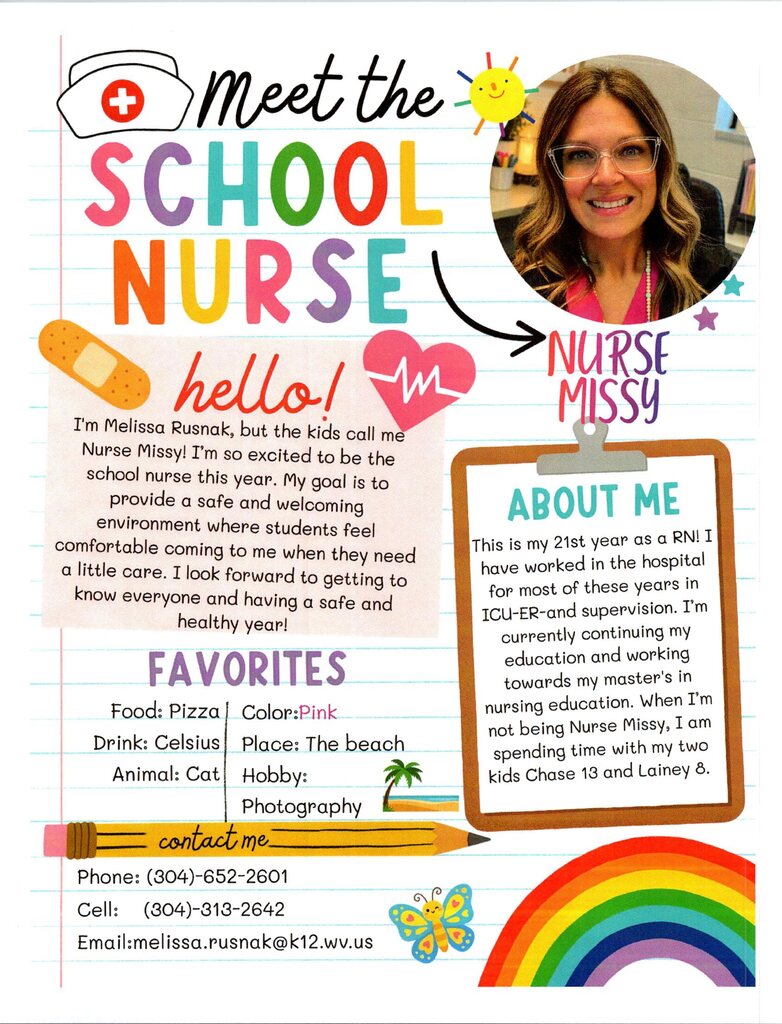 Meet the
SCHOOL
NURSE
NURSE
MISSY
hello!
I'm Melissa Rusnak, but the kids call me
Nurse Missy! I'm so excited to be the
school nurse this year. My goal is to
provide a safe and welcoming
environment where students feel
comfortable coming to me when they need
a little care. I look forward to getting to
know everyone and having a safe and
healthy year!
ABOUT ME
This is my 21st year as a RN! I
have worked in the hospital
for most of these years in
ICU-ER-and supervision. I'm
currently continuing my
education and working
towards my master's in
nursing education. When I'm
not being Nurse Missy, I am
spending time with my two
kids Chase 13 and Lainey 8.
FAVORITES
Food: Pizza
Drink: Celsius
Animal: Cat
Color:Pink
Place: The beach
Hobby:
Photography
contact me
Phone: (304)-652-2601
Cell: (304)-313-2642
Email:melissa.rusnak@k12.wv.us